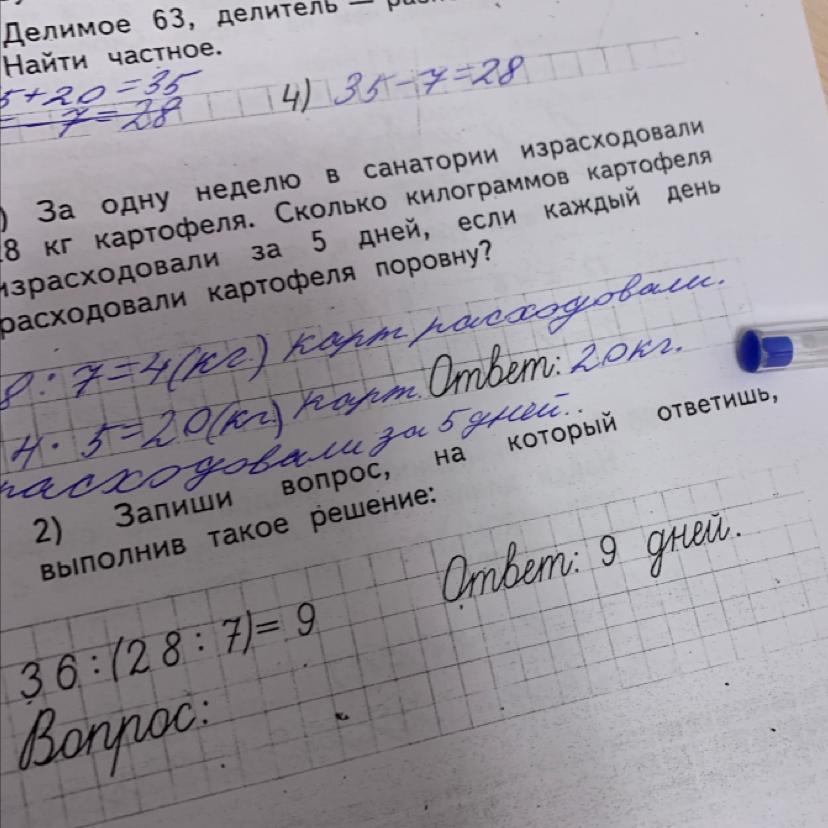 Делимое 63, делитель —
Найти частное.
5+20=35
- 7=28
4) 35-7=28
) За одну неделю в санатории израсходовали
28 кг картофеля. Сколько килограммов картофеля
израсходовали за 5 дней, если каждый день
расходовали картофеля поровну?
8:7=4(кг) карт расходовали.
4·5=20(кг) карт. Ответ: 20кг.
расходовали за 5 дней.
2) Запиши вопрос, на который ответишь,
выполнив такое решение:
36:(28:7)=9
Ответ: 9 дней.
Вопрос: